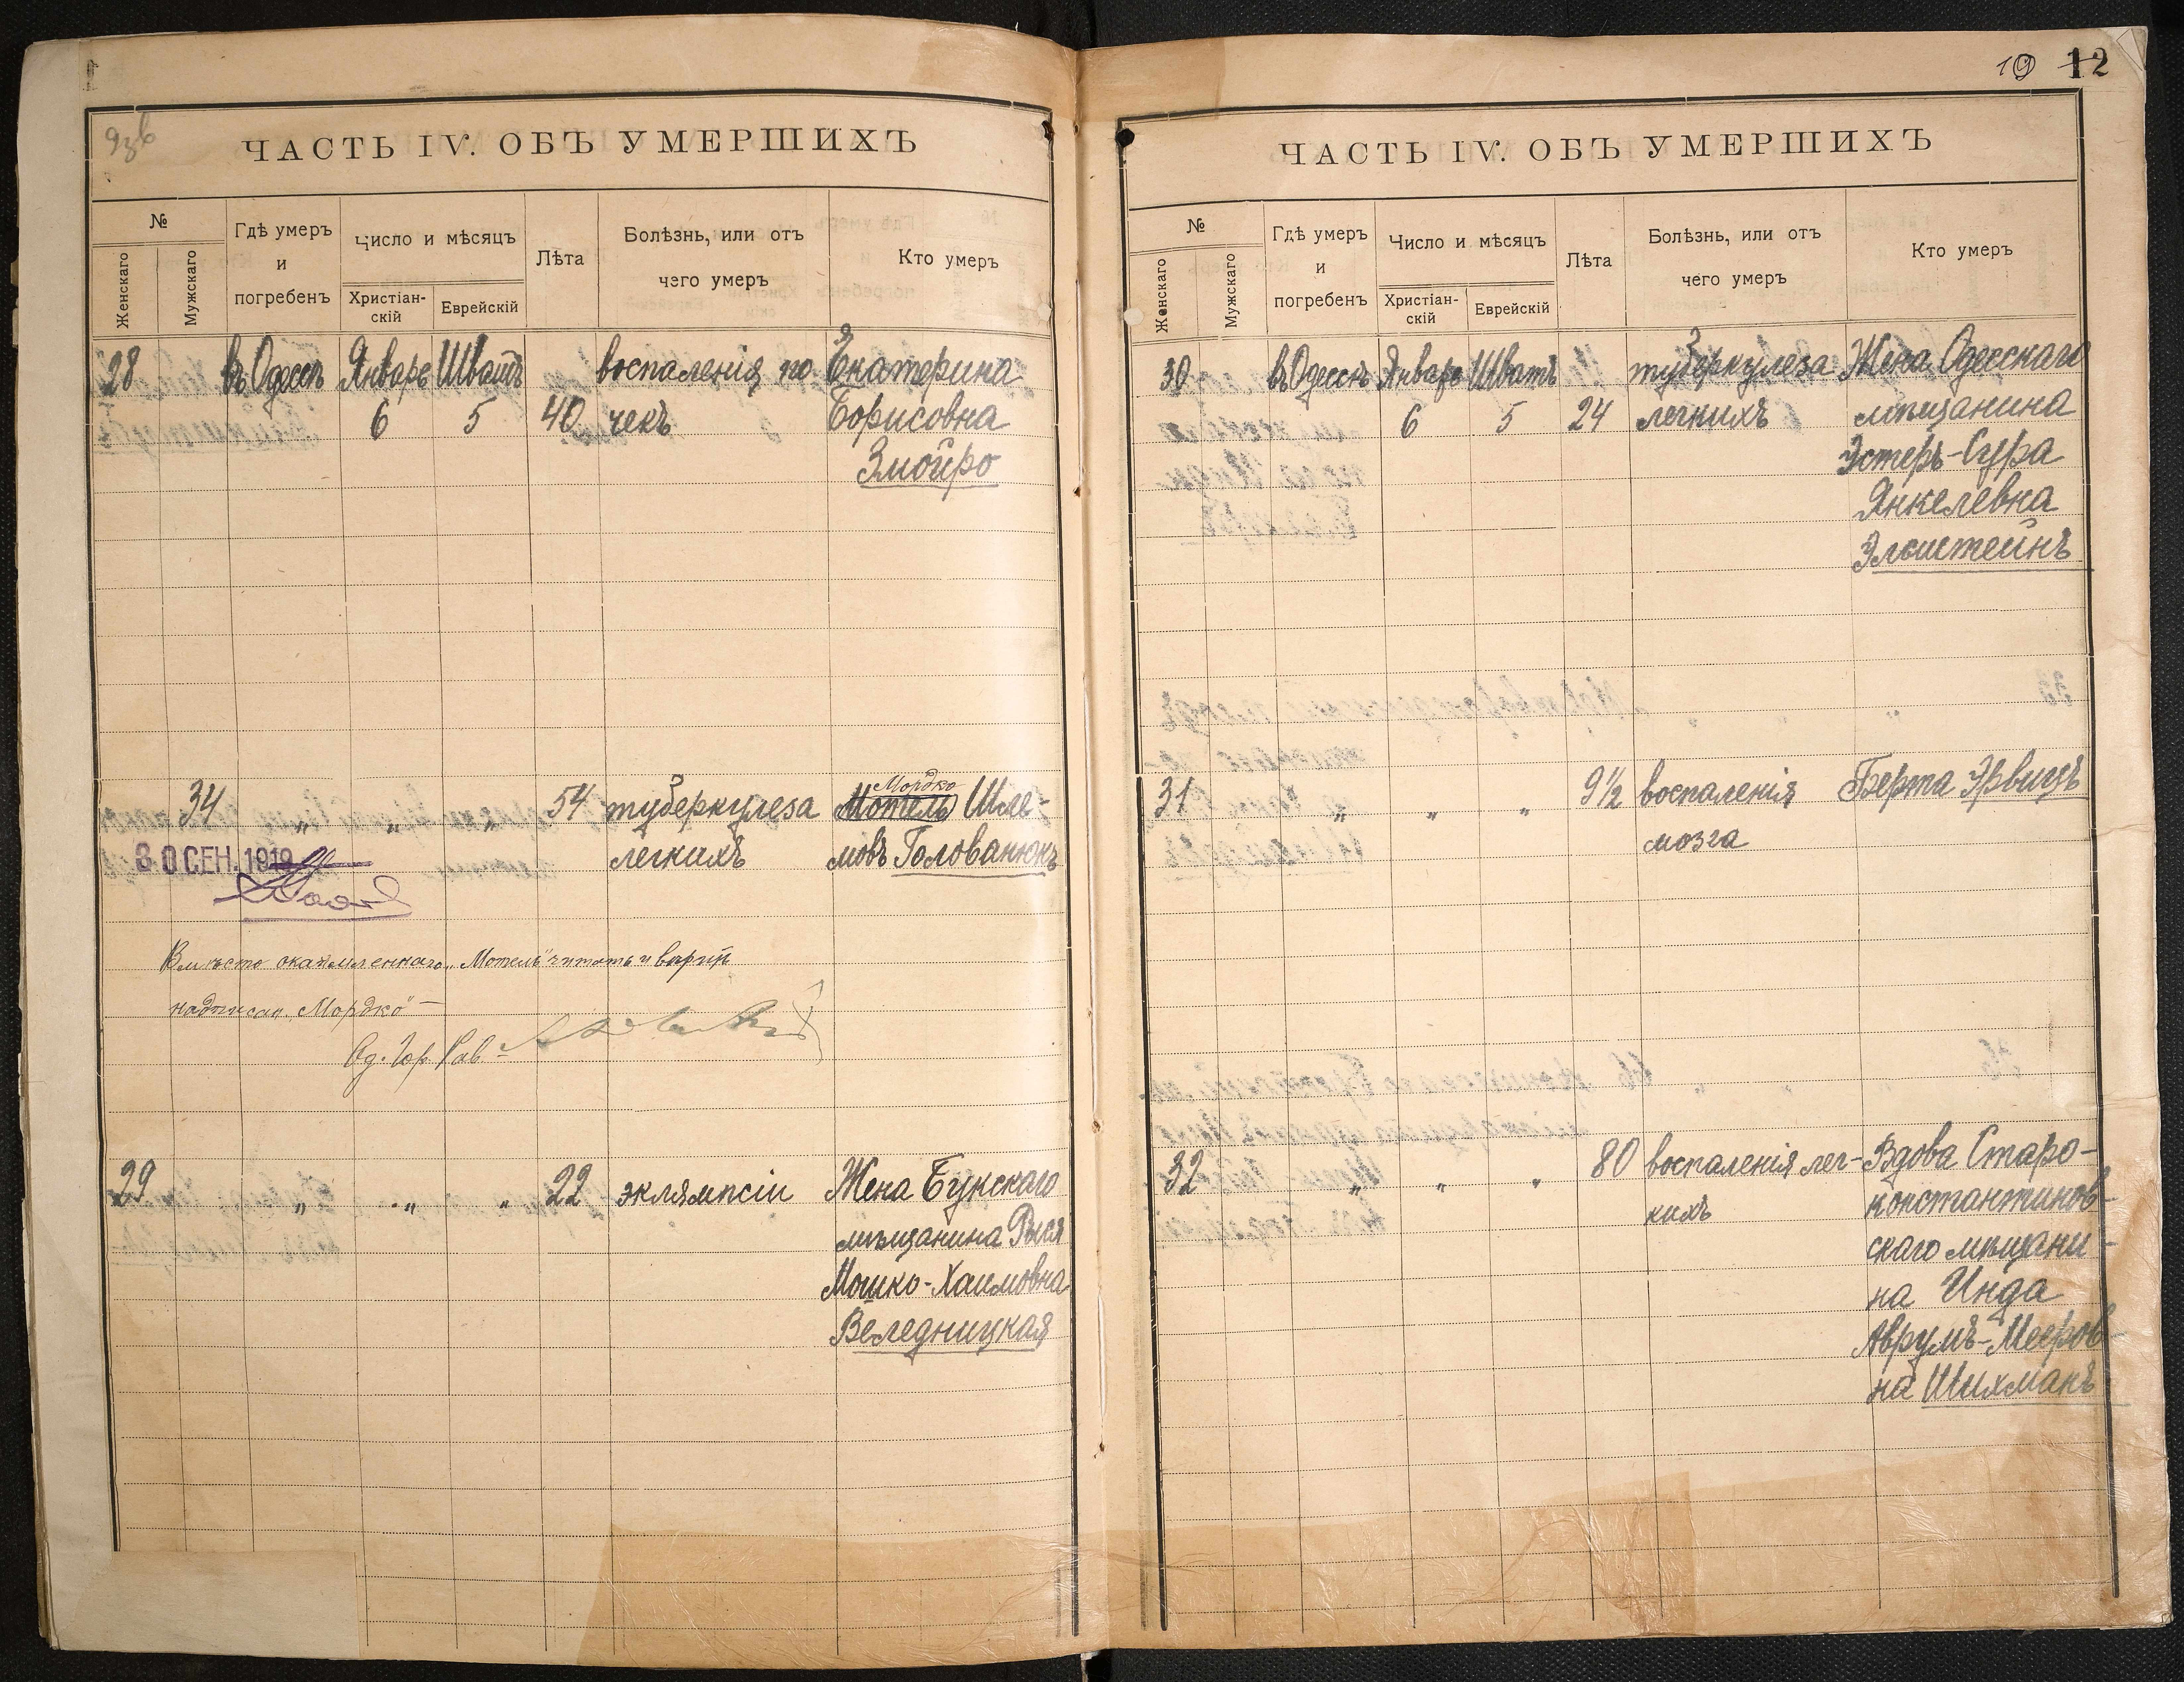 ЧАСТЬ IV. ОБЪ УМЕРШИХЪ
№
Женскаго
Мужскаго
Гдѣ умеръ
и
погребенъ
Число и мѣсяцъ
Христіан-
скій
Еврейскій
Лѣта
Болѣзнь, или отъ
чего умеръ
Кто умеръ
28 въ Одессѣ Январь Шватъ воспаленія по- Екатерина
6 5 40 чекъ Борисовна
Змойро
Мордко
34 „ „ „ 54 туберкулеза Мотель Шле-
30 СЕН. 1919 легкихъ мовъ Голованюкъ
Вмѣсто окаймленнаго „Мотель" читать и вѣрить
надписан. „Мордко" –
Од. Гор. Рав.
29 „ „ „ 22 эклямпсіи Жена Букскаго
мѣщанина Рыся
Мошко-Хаимовна
Веледницкая
19 12
ЧАСТЬ IV. ОБЪ УМЕРШИХЪ
№
Женскаго
Мужскаго
Гдѣ умеръ
и
погребенъ
Число и мѣсяцъ
Христіан-
скій
Еврейскій
Лѣта
Болѣзнь, или отъ
чего умеръ
Кто умеръ
30 въ Одессѣ Январь Шватъ туберкулеза Жена Одесскаго
6 5 24 легкихъ мѣщанина
Эстеръ-Сура
Янкелевна
Элштейнъ
31 „ „ „ 9½ воспаленія Берта Эрвицъ
мозга
32 „ „ „ 80 воспаленія лег- Вдова Старо-
кихъ константинов-
скаго мѣщани-
на Инда
Аврумъ-Мееров-
на Шихманъ